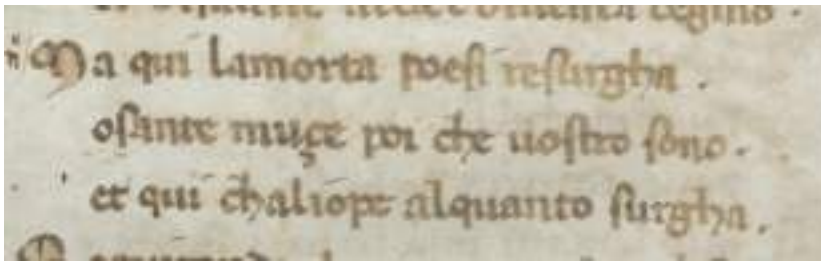 Ma qui lamorta poesi resurgha .
osante muçe poi che uostro sono .
et qui chaliope alquanto surgha .